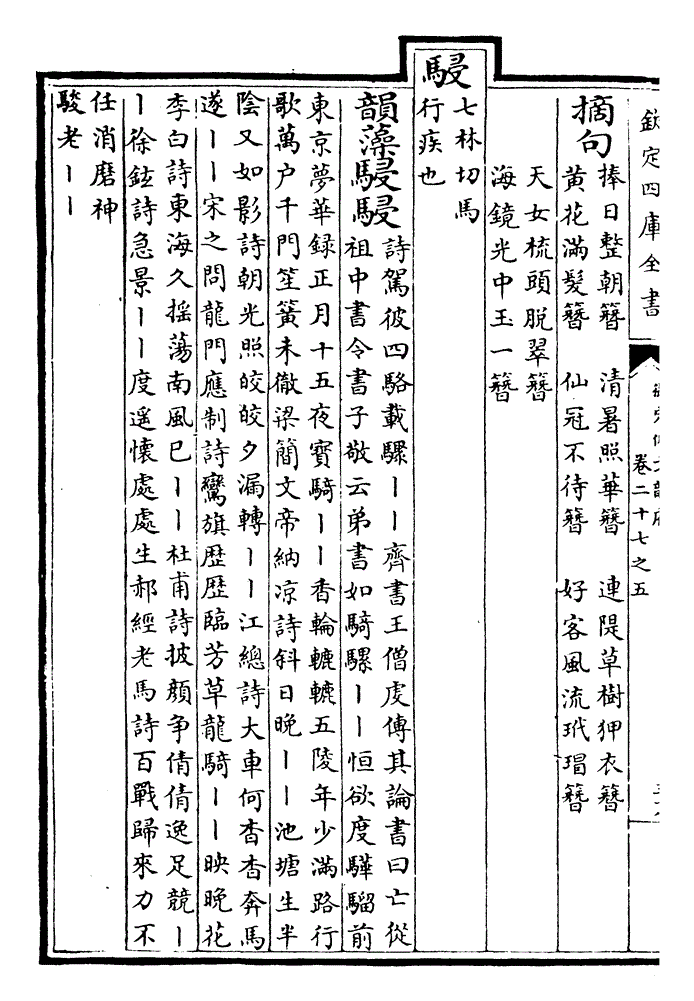 欽定四庫全書
卷二十七之五
摘句
捧日整朝簪　清暑照華簪　連隄草樹狎衣簪
黄花滿髮簪　仙冠不待簪　好客風流玳瑁簪
天女梳頭脱翠簪
海鏡光中玉一簪
駸
七林切馬
行疾也
韻藻駸駸
詩駕彼四駱載驟丨丨齊書王僧虔傳其論書曰亡從
祖中書令書子敬云弟書如騎騾丨丨恒欲度驊騮前
東京夢華録正月十五夜寳騎丨丨香輪轆轆五陵年少滿路行
歌萬户千門笙簧未徹梁簡文帝納凉詩斜日晚丨丨池塘生半
陰又如影詩朝光照皎皎夕漏轉丨丨江總詩大車何杳杳奔馬
遂丨丨宋之問龍門應制詩鸞旗歴歴臨芳草龍騎丨丨映晚花
李白詩東海久摇蕩南風已丨丨杜甫詩披顔争倩倩逸足競丨
丨徐鉉詩急景丨丨度遥懷處處生郝經老馬詩百戰歸來力不
任消磨神
駿老丨丨